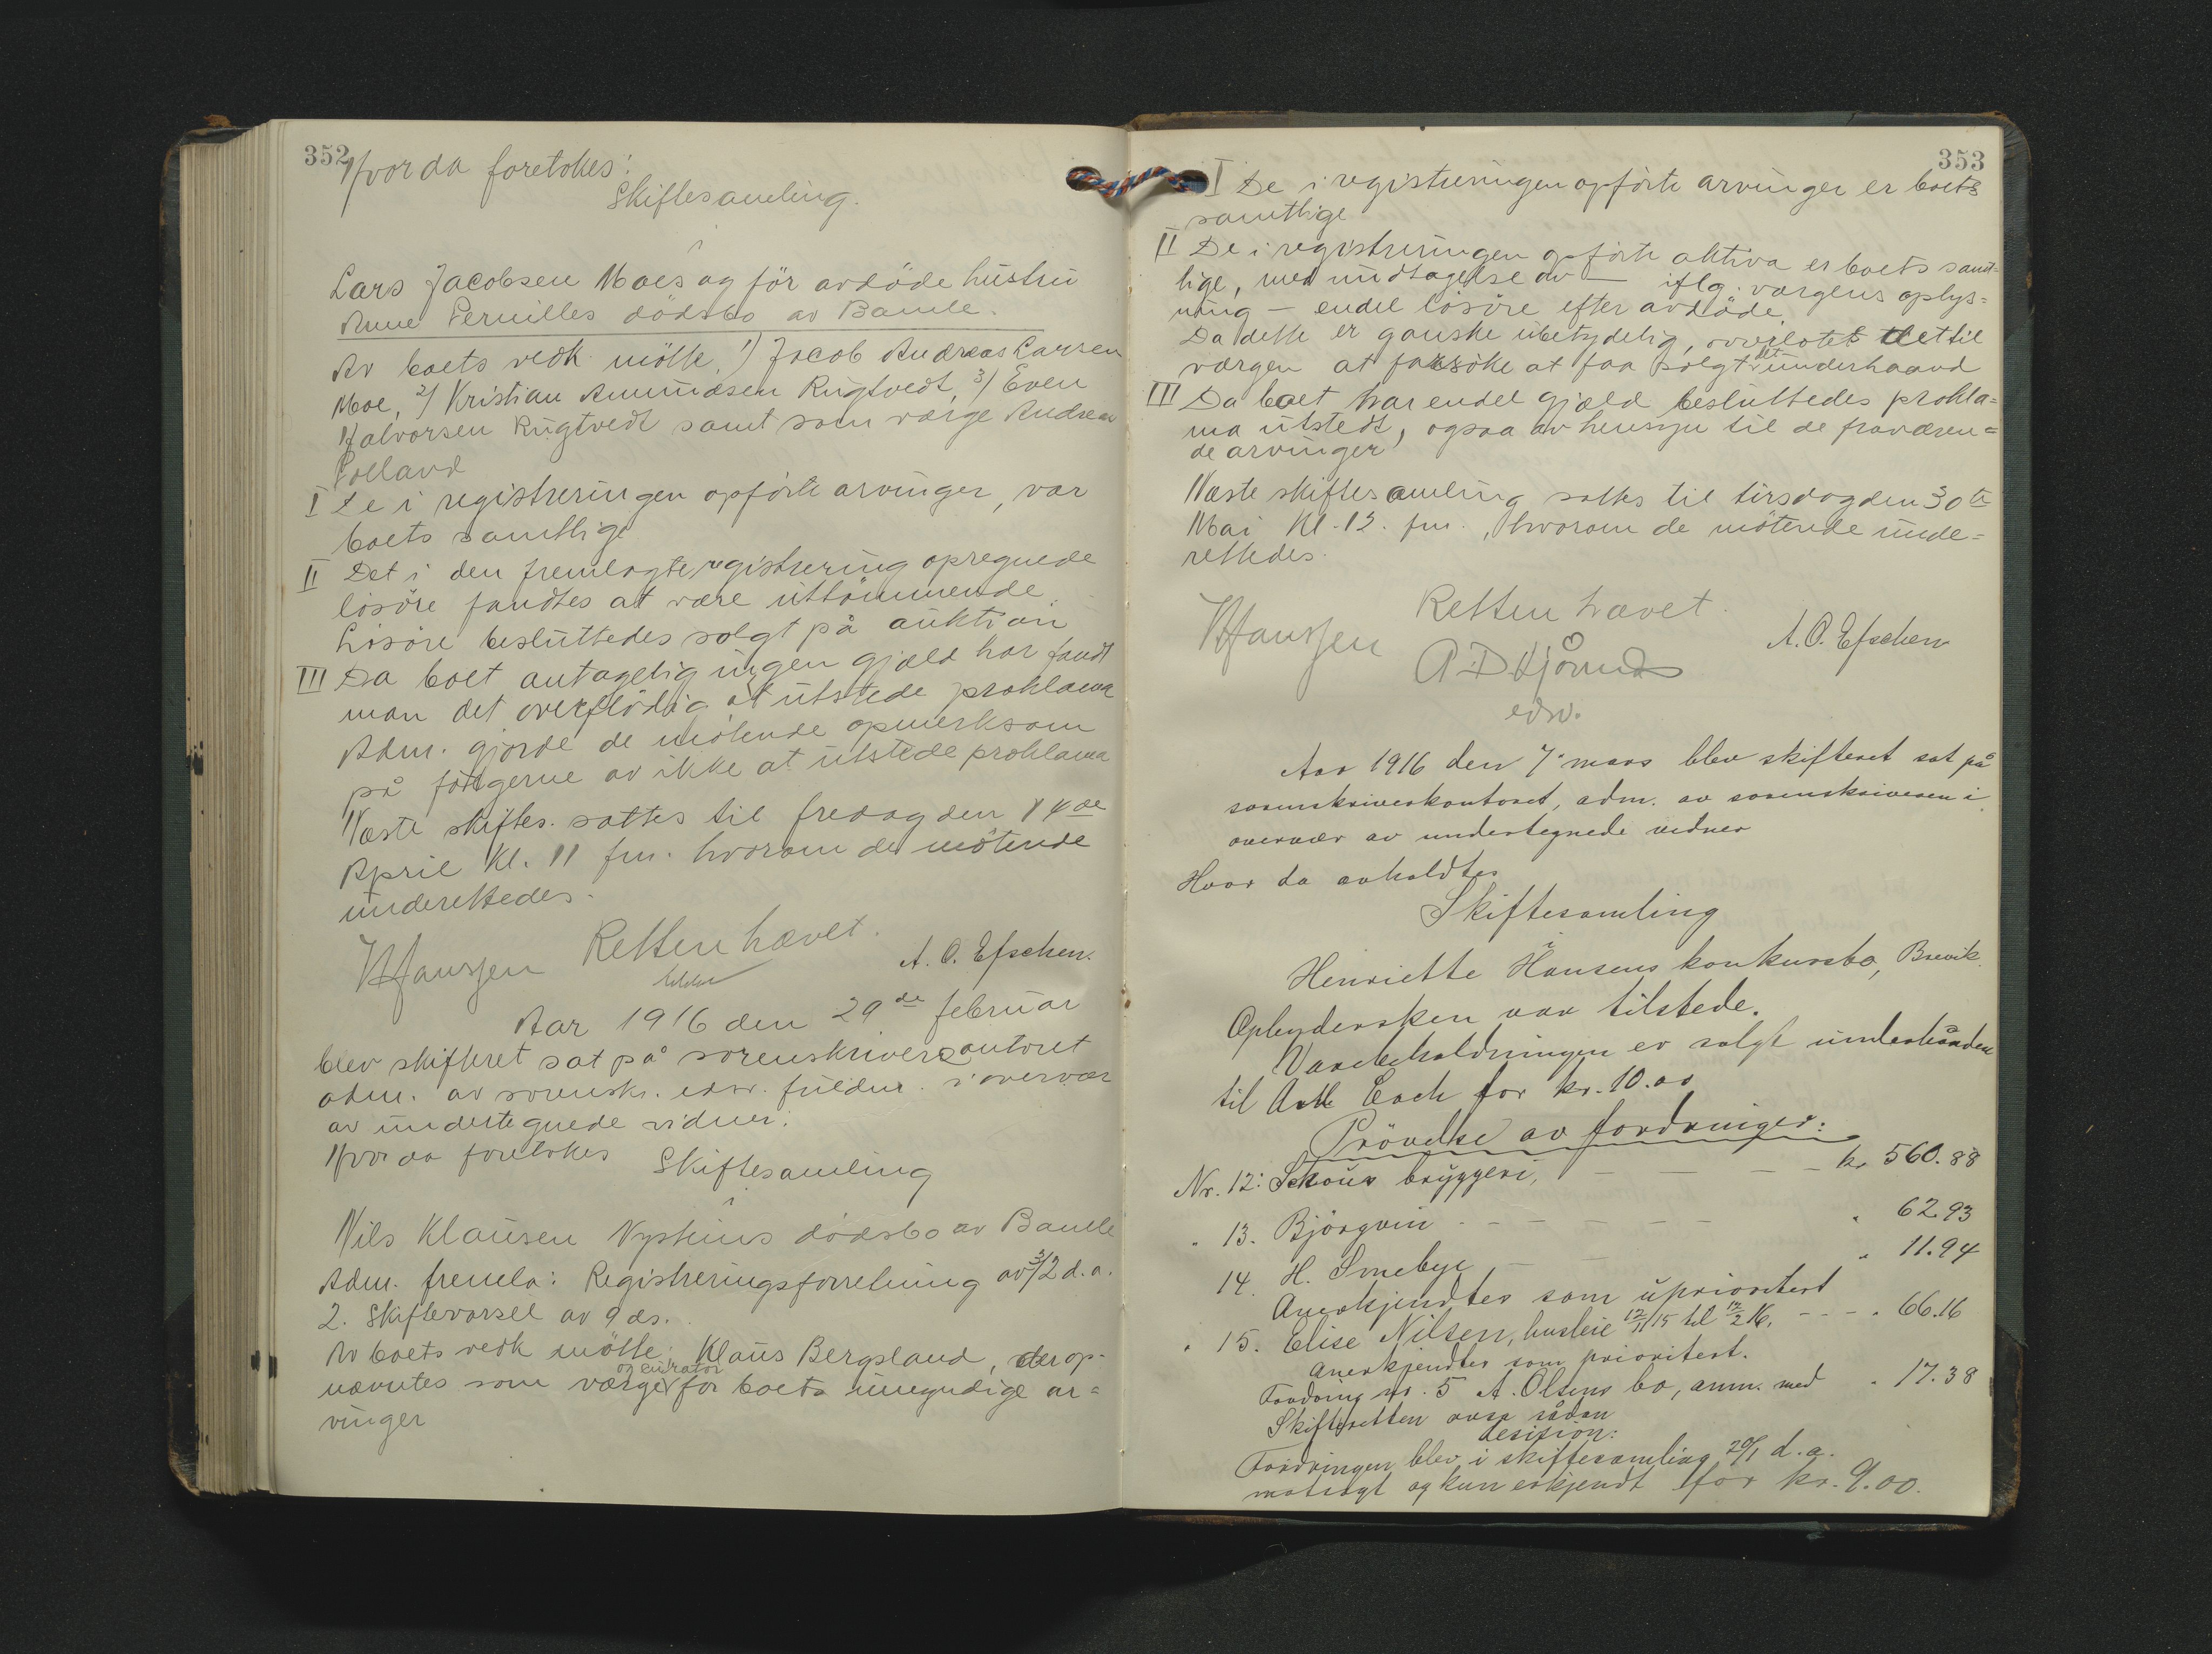 352
Hvor da foretokes:
Skiftesamling
i
Lars Jacobsen Moes og för avdöde hustru
Anne Pernilles dödsbo av Bamle.
Av boets vedk. mötte 1) Jacob Andreas Larsen
Moe, 2) Kristian Ammundsen Rugtvedt, 3) Even
Halvorsen Rugtvedt samt som værge Andreas
I De i registreringen opförte arvinger, var
boets samtlige
II Det i den fremlagte registrering opregnede
lösöre fandtes at være uttömmende.
Lösöre besluttedes solgt på auktion
III Da boet antagelig ingen gjæld har fandt
man det overflödig at utstede proklama
Adm. gjorde de mötende opmerksom
på fölgerne av ikke at utstede proklama
Næste skiftes. sattes til fredag den 14de
April Kl. 11 fm. hvorom de mötende
underettedes.
Retten hævet.
Hanssen
A. O. Efschen.
Aar 1916 den 29de februar
blev skifteret sat på sorenskriverkontoret
adm. av sorensk. edsv. fuldm. i overvær
av undertegnede vidner:
Hvor da foretokes
Skiftesamling
i
Nils Klausen Nyhuus dödsbo av Bamle
Adm. fremla: Registreringsforretning av 3/2 d. a.
2. Skiftevarsel av 9 ds.
Av boets vedk mötte: Klaus Bergsland, der op-
og curator
nævntes som værge for boets umyndige ar=
vinger
353
I De i registreringen opförte arvinger er boets
samtlige
II De i registreringen opförte aktiva er boets samt=
lige, med undtagelse av — iflg. værgens oplys=
ning — endel lösöre efter avdöde.
Da dette er ganske ubetydelig, overlotes det til
værgen at forsöke at faa solgt det underhaand
III Da boet har endel gjæld besluttedes prokla=
ma utstedt, ogsaa av hensyn til de fraværen=
de arvinger
Næste skiftesamling sattes til tirsdag den 30te
Mai Kl. 12. fm., hvorom de mötende unde=
rettedes.
Retten hævet.
Hanssen
A. O. Efschen
edsv.
Aar 1916 den 7. mars blev skifteret sat på
sorenskriverkontoret, adm. av sorenskriveren i
overvær av undertegnede vidner
Hvor da avholdtes
Skiftesamling
i
Henriette Hansens konkursbo, Brevik.
Opbydersken var tilstede.
Varebeholdningen er solgt underhånden
til for kr. 10.00
Prövelse av fordringer:
Nr. 12: Schous bryggeri, — — — — kr 560.88
" 13. Björgvin - - - - - - " 62.93
14. H. Smebye — — " 11.94
Anerkjendtes som uprioritert
" 15. Elise Nilsen, husleie 12/11 15 til 12/2 16. - - - " 66.16
Anerkjendtes som prioritert.
Fordring nr. 5 A. Olsens bo, anm. med " 17.38
Skifteretten avsa sådan
desisjon:
Fordringen blev i skiftesamling 29/1 d. a.
motsagt og kun erkjendt for kr. 9.00.